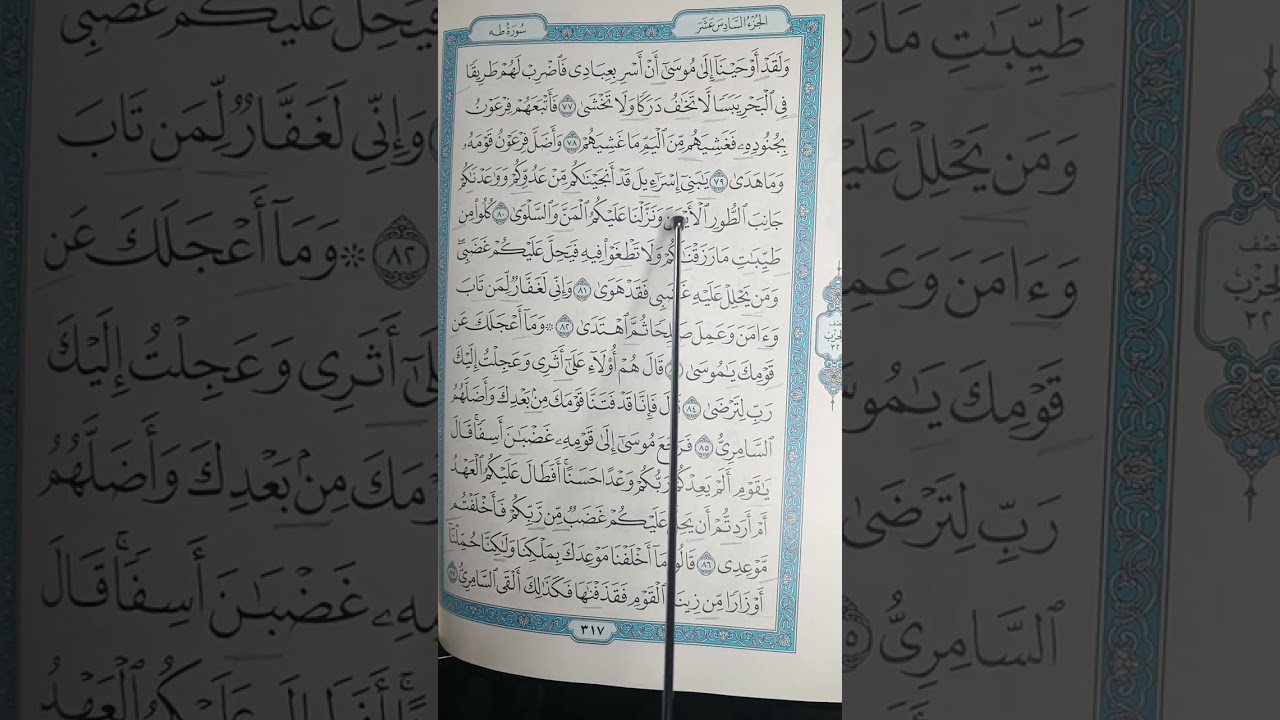 الجزء السادس عشر
سورة طه
وَلَقَدْ أَوْحَيْنَآ إِلَىٰ مُوسَىٰٓ أَنْ أَسْرِ بِعِبَادِى فَٱضْرِبْ لَهُمْ طَرِيقًا
فِى ٱلْبَحْرِ يَبَسًا لَّا تَخَٰفُ دَرَكًا وَلَا تَخْشَىٰ ٧٧ فَأَتْبَعَهُمْ فِرْعَوْنُ
بِجُنُودِهِۦ فَغَشِيَهُم مِّنَ ٱلْيَمِّ مَا غَشِيَهُمْ ٧٨ وَأَضَلَّ فِرْعَوْنُ قَوْمَهُۥ
وَمَا هَدَىٰ ٧٩ يَٰبَنِىٓ إِسْرَٰٓءِيلَ قَدْ أَنجَيْنَٰكُم مِّنْ عَدُوِّكُمْ وَوَٰعَدْنَٰكُمْ
جَانِبَ ٱلطُّورِ ٱلْأَيْمَنَ وَنَزَّلْنَا عَلَيْكُمُ ٱلْمَنَّ وَٱلسَّلْوَىٰ ٨٠ كُلُوا۟ مِن
طَيِّبَٰتِ مَا رَزَقْنَٰكُمْ وَلَا تَطْغَوْا۟ فِيهِ فَيَحِلَّ عَلَيْكُمْ غَضَبِى ۖ
وَمَن يَحْلِلْ عَلَيْهِ غَضَبِى فَقَدْ هَوَىٰ ٨١ وَإِنِّى لَغَفَّارٌ لِّمَن تَابَ
وَءَامَنَ وَعَمِلَ صَٰلِحًا ثُمَّ ٱهْتَدَىٰ ٨٢ ۞ وَمَآ أَعْجَلَكَ عَن
قَوْمِكَ يَٰمُوسَىٰ قَالَ هُمْ أُو۟لَآءِ عَلَىٰٓ أَثَرِى وَعَجِلْتُ إِلَيْكَ
رَبِّ لِتَرْضَىٰ ٨٤ قَالَ فَإِنَّا قَدْ فَتَنَّا قَوْمَكَ مِنۢ بَعْدِكَ وَأَضَلَّهُمُ
ٱلسَّامِرِىُّ ٨٥ فَرَجَعَ مُوسَىٰٓ إِلَىٰ قَوْمِهِۦ غَضْبَٰنَ أَسِفًا ۚ قَالَ
يَٰقَوْمِ أَلَمْ يَعِدْكُمْ رَبُّكُمْ وَعْدًا حَسَنًا ۚ أَفَطَالَ عَلَيْكُمُ ٱلْعَهْدُ
أَمْ أَرَدتُّمْ أَن يَحِلَّ عَلَيْكُمْ غَضَبٌ مِّن رَّبِّكُمْ فَأَخْلَفْتُم
مَّوْعِدِى ٨٦ قَالُوا۟ مَآ أَخْلَفْنَا مَوْعِدَكَ بِمَلْكِنَا وَلَٰكِنَّا حُمِّلْنَآ
أَوْزَارًا مِّن زِينَةِ ٱلْقَوْمِ فَقَذَفْنَٰهَا فَكَذَٰلِكَ أَلْقَى ٱلسَّامِرِىُّ ٨٧
٣١٧